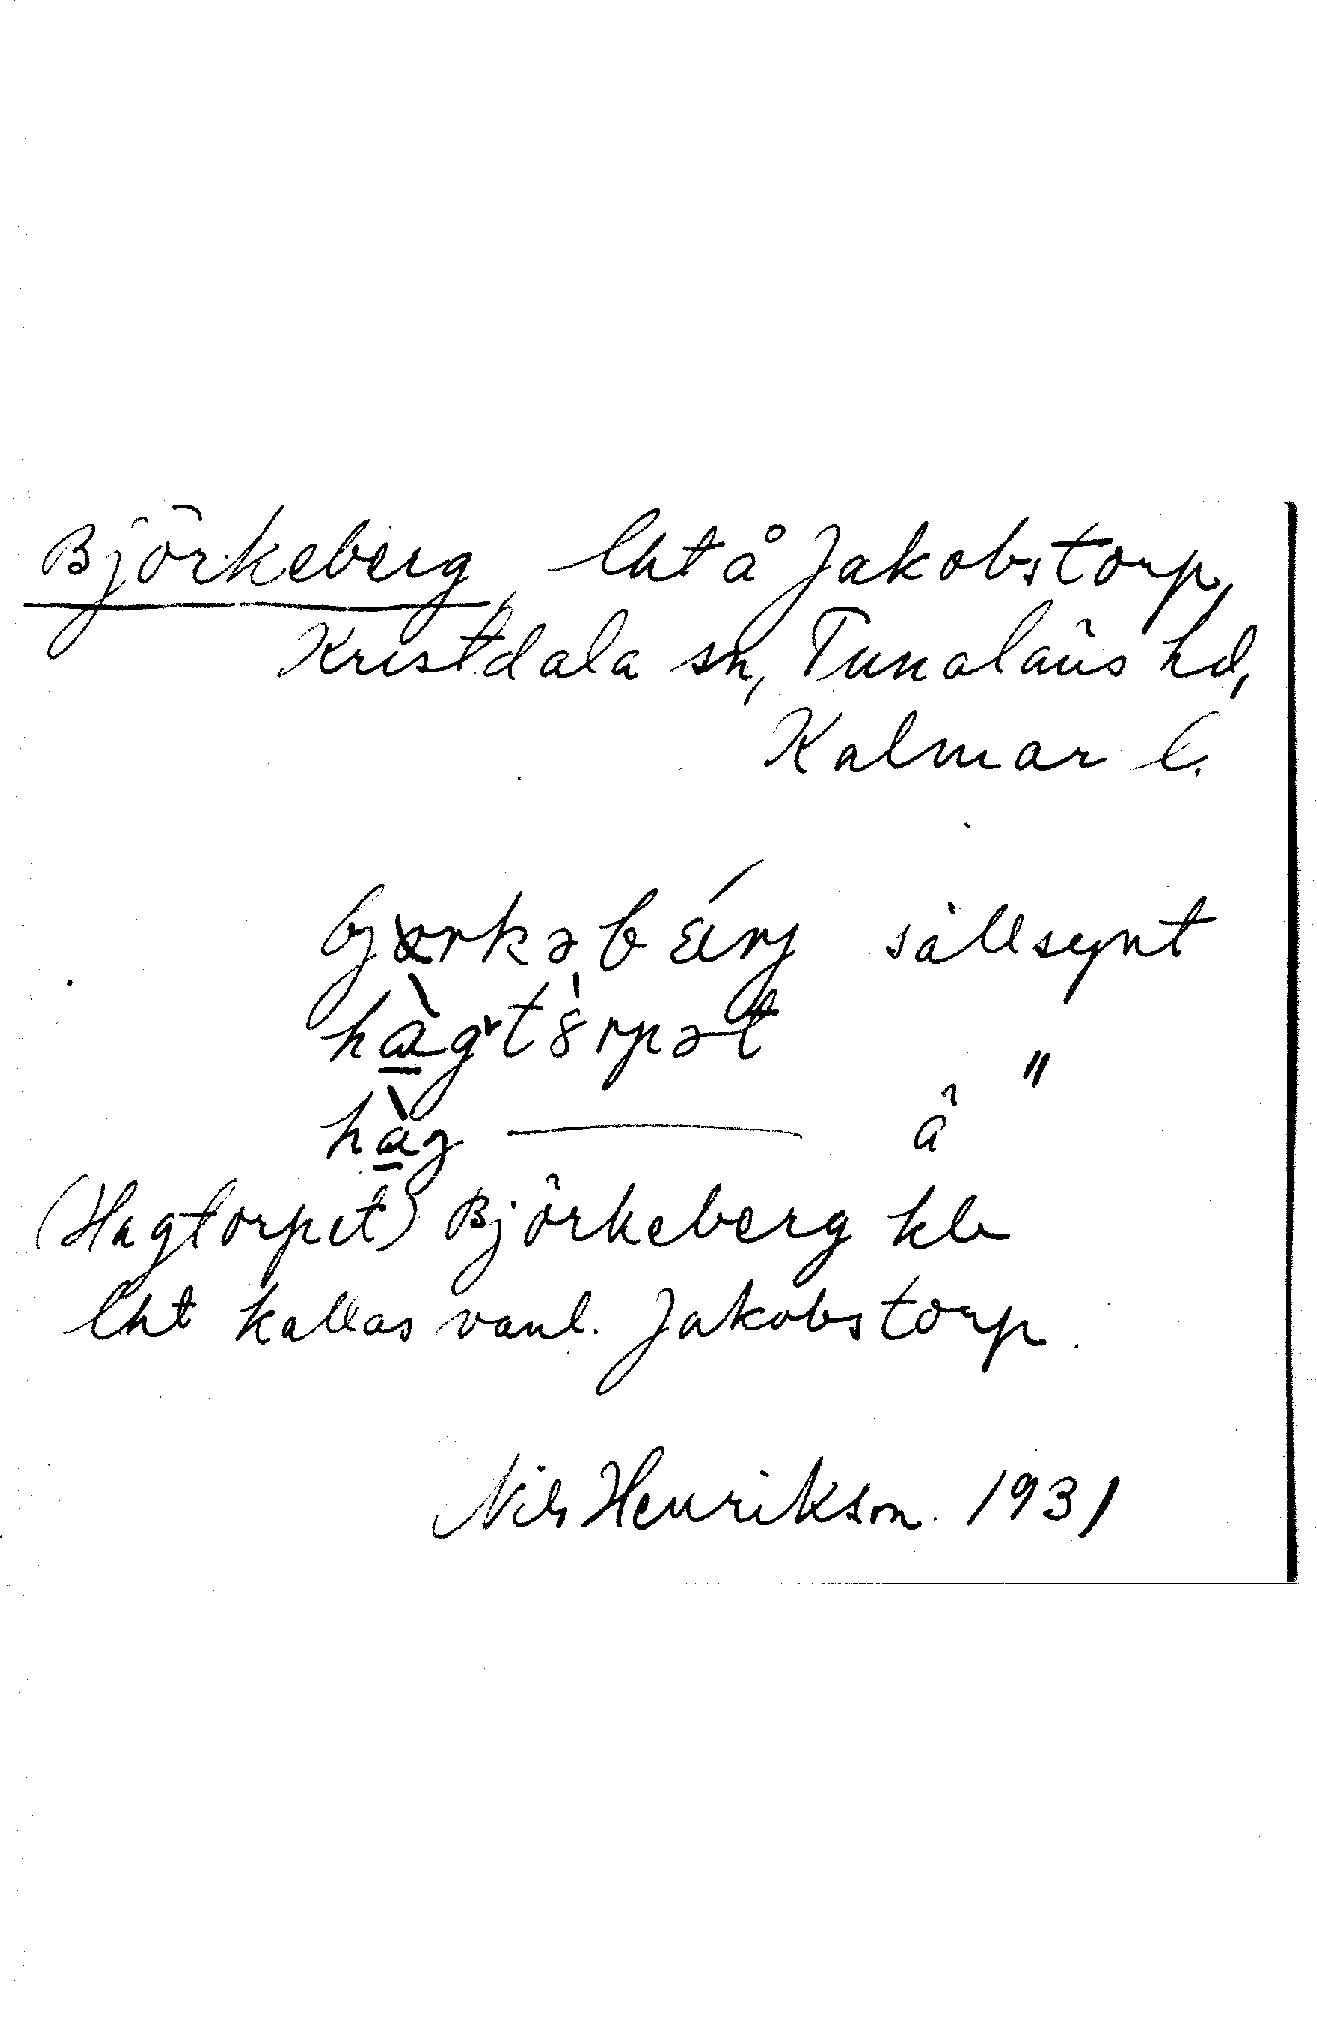 Björkeberg, lht å Jakobstorp,
Kristdala sn, Tunaläns hd,
Kalmar l.
sällsynt
hàgtòrpət
"
hàg ——— å
(Hagtorpet) Björkeberg kle
lht kallas vanl. Jakobstorp.
Nils Henrikson. 1931